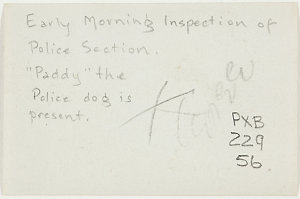 Early Morning Inspection of
Police Section.
"Paddy" the
Police dog is
present.
PXB
229
56